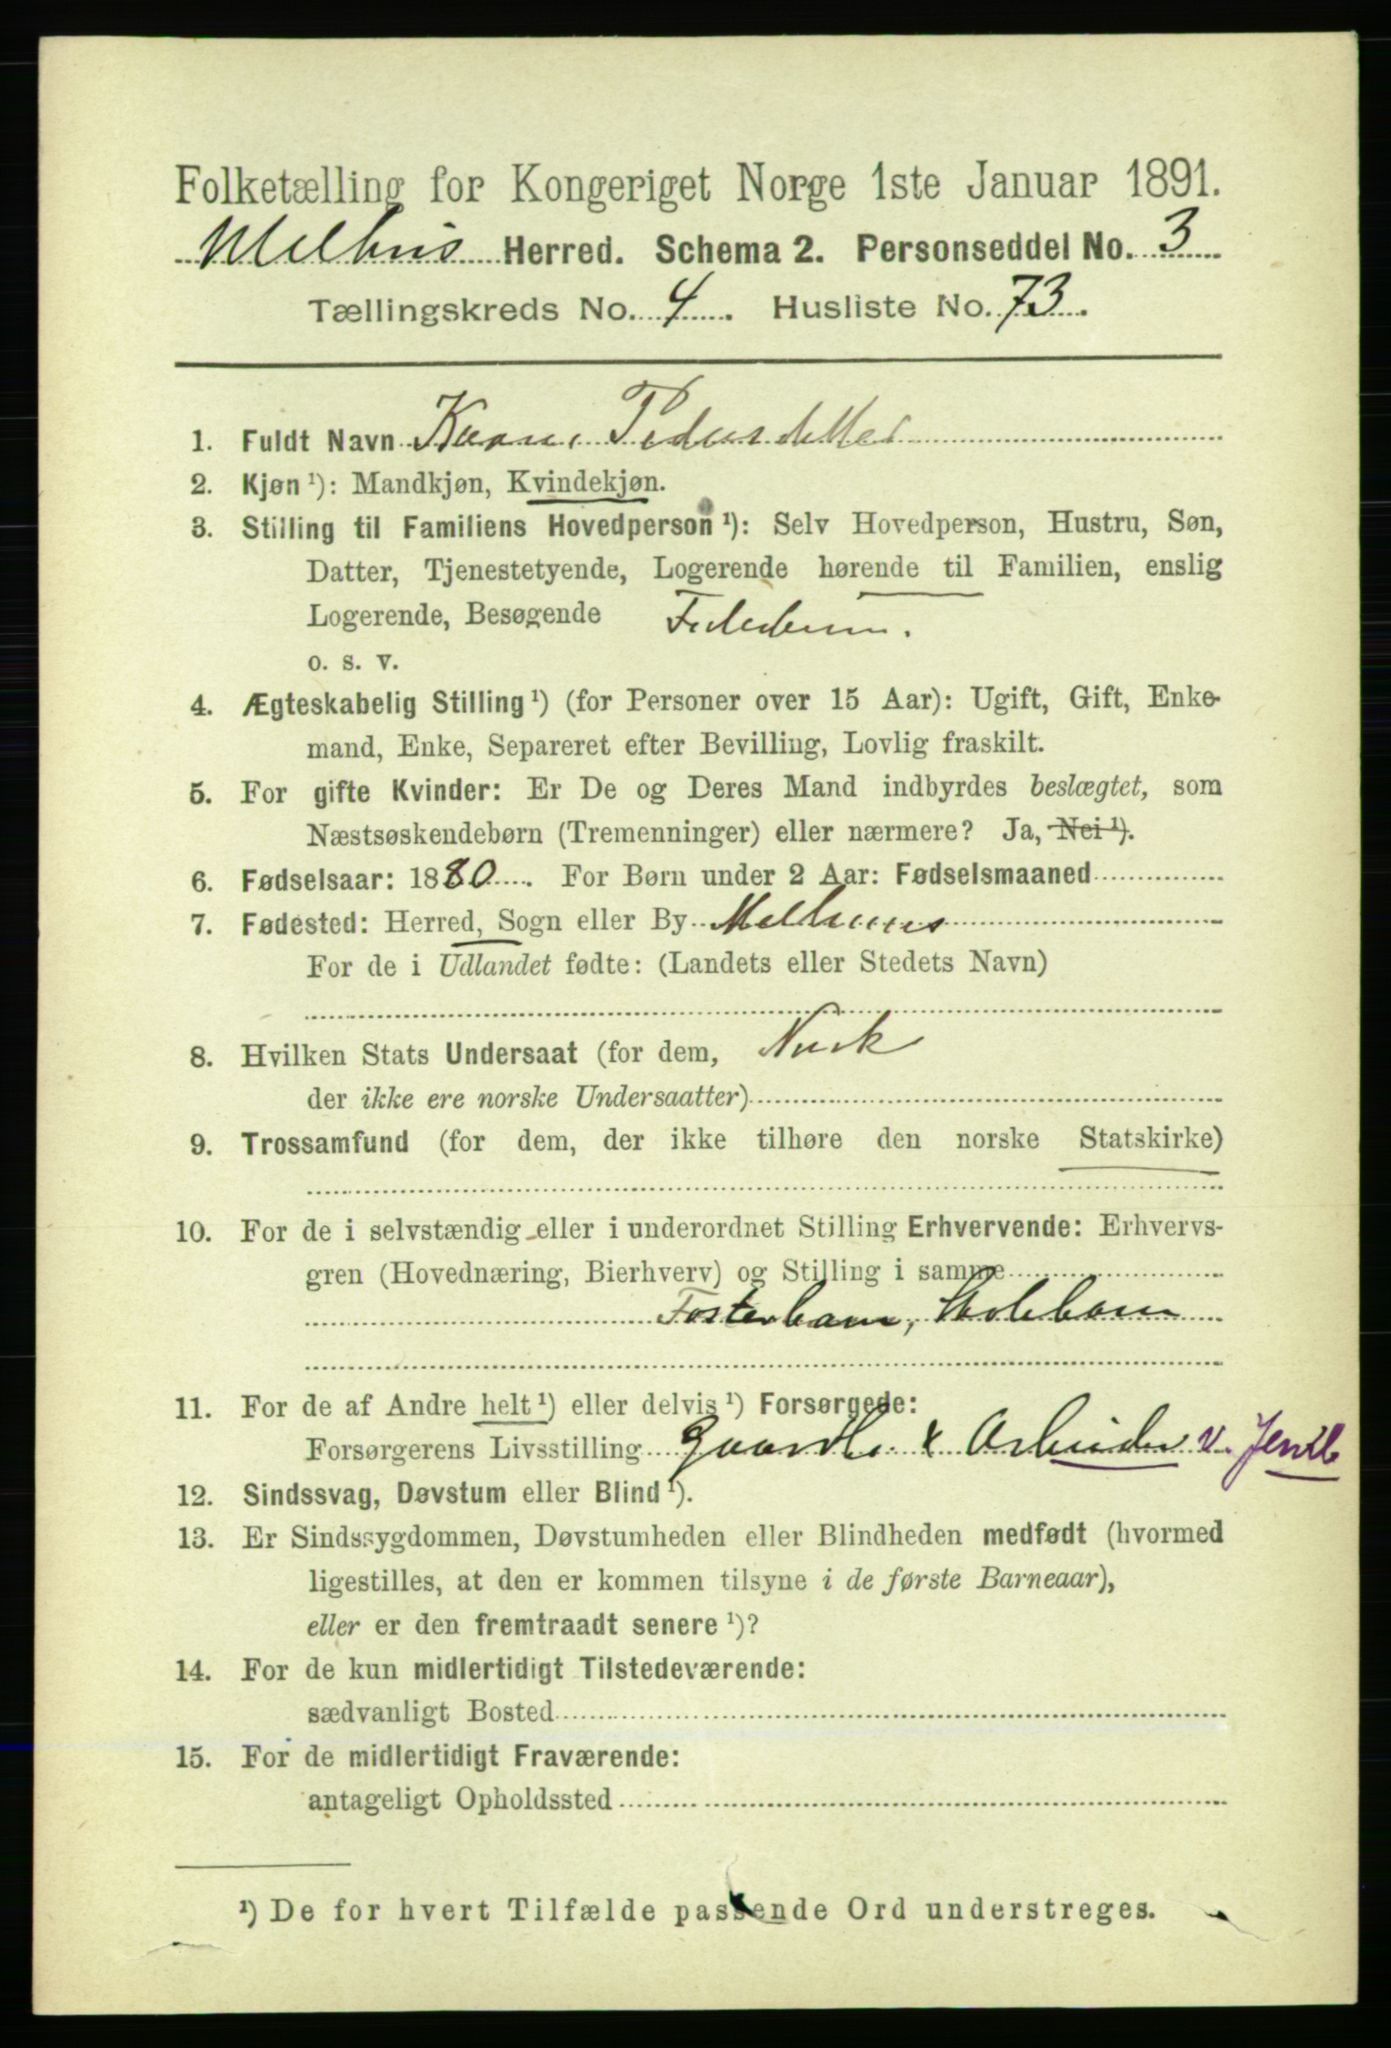 Folketælling for Kongeriget Norge 1ste Januar 1891.
Melhus Herred. Schema 2. Personseddel No. 3
Tællingskreds No. 4. Husliste No. 73.
1. Fuldt Navn Pedersdatter
2. Kjøn ¹): Mandkjøn, Kvindekjøn.
3. Stilling til Familiens Hovedperson ¹): Selv Hovedperson, Hustru, Søn,
Datter, Tjenestetyende, Logerende hørende til Familien, enslig
Logerende, Besøgende
o. s. v.
4. Ægteskabelig Stilling ¹) (for Personer over 15 Aar): Ugift, Gift, Enke-
mand, Enke, Separeret efter Bevilling, Lovlig fraskilt.
5. For gifte Kvinder: Er De og Deres Mand indbyrdes beslægtet, som
Næstsøskendebørn (Tremenninger) eller nærmere? Ja, Nei ¹).
6. Fødselsaar: 1880. For Børn under 2 Aar: Fødselsmaaned
7. Fødested: Herred, Sogn eller By Melhuus
For de i Udlandet fødte: (Landets eller Stedets Navn)
8. Hvilken Stats Undersaat (for dem, Norsk
der ikke ere norske Undersaatter)
9. Trossamfund (for dem, der ikke tilhøre den norske Statskirke)
10. For de i selvstændig eller i underordnet Stilling Erhvervende: Erhvervs-
gren (Hovednæring, Bierhverv) og Stilling i samme
Fosterbarn, Skolebarn
11. For de af Andre helt ¹) eller delvis ¹) Forsørgede:
Forsørgerens Livsstilling Gaardbr. & Arbeider v. Jernb
12. Sindssvag, Døvstum eller Blind ¹).
13. Er Sindssygdommen, Døvstumheden eller Blindheden medfødt (hvormed
ligestilles, at den er kommen tilsyne i de første Barneaar),
eller er den fremtraadt senere ¹)?
14. For de kun midlertidigt Tilstedeværende:
sædvanligt Bosted
15. For de midlertidigt Fraværende:
antageligt Opholdssted
¹) De for hvert Tilfælde passende Ord understreges.